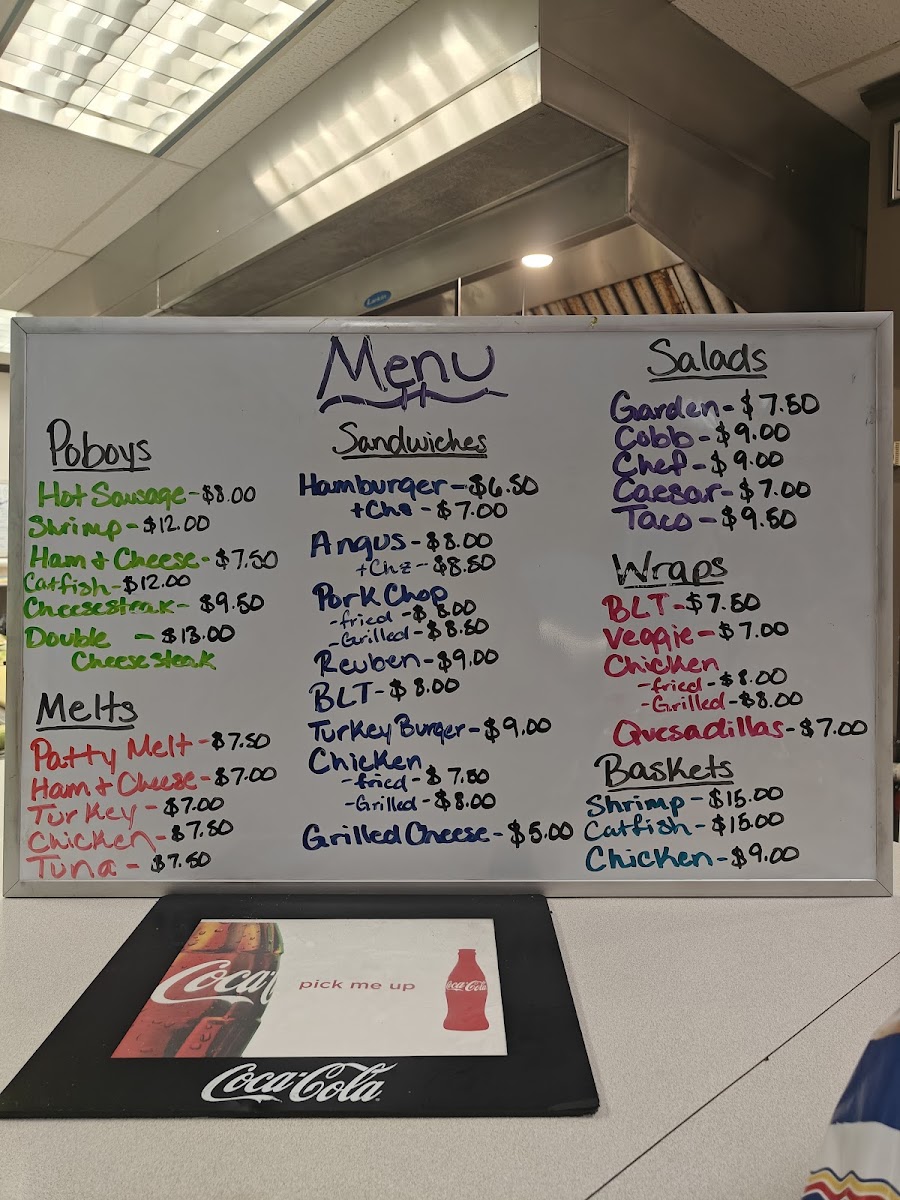 Menu
Poboys
Hot Sausage - $8.00
Shrimp - $12.00
Ham & Cheese - $7.50
Catfish - $12.00
Cheesesteak - $9.50
Double - $13.00
Cheesesteak
Melts
Patty Melt - $7.50
Ham & Cheese - $7.00
Turkey - $7.00
Chicken - $7.50
Tuna - $7.50
Sandwiches
Hamburger - $6.50
+Chz - $7.00
Angus - $8.00
+Chz - $8.50
Pork Chop
- fried - $8.00
- Grilled - $8.50
Reuben - $9.00
BLT - $8.00
Turkey Burger - $9.00
Chicken
- fried - $7.50
- Grilled - $8.00
Grilled Cheese - $5.00
Salads
Garden - $7.50
Cobb - $9.00
Chef - $9.00
Caesar - $7.00
Taco - $9.50
Wraps
BLT - $7.50
Veggie - $7.00
Chicken
- fried - $8.00
- Grilled - $8.00
Quesadillas - $7.00
Baskets
Shrimp - $15.00
Catfish - $15.00
Chicken - $9.00
pick me up
Coca-Cola
Coca-Cola